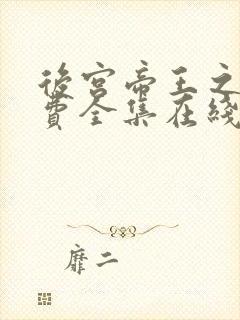 後宫帝王之
費全集在綫
靡二